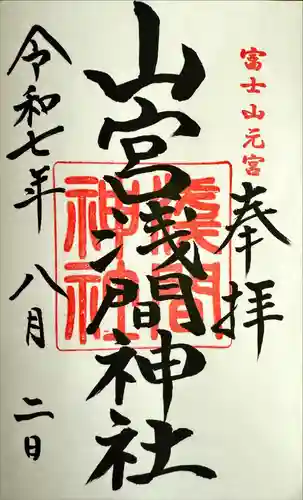 富士山元宮
奉拝
山宮浅間神社
浅間
神社
令和七年 八月 二日